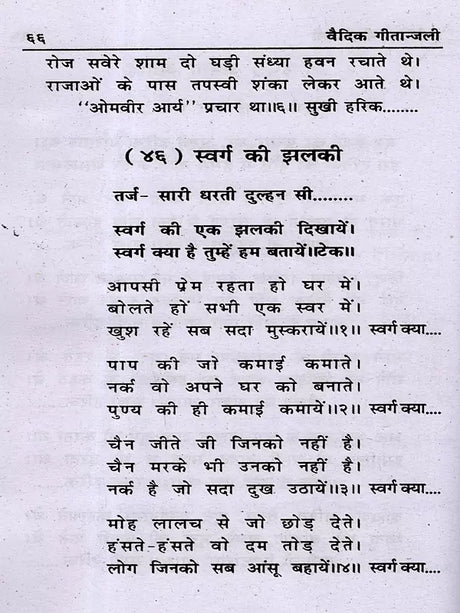 ६६ वैदिक गीतान्जली
रोज सवेरे शाम दो घड़ी संध्या हवन रचाते थे।
राजाओं के पास तपस्वी शंका लेकर आते थे।
“ओमवीर आर्य” प्रचार था॥६॥ सुखी हरिक........
(४६) स्वर्ग की झलकी
तर्ज- सारी धरती दुल्हन सी........
स्वर्ग की एक झलकी दिखायें।
स्वर्ग क्या है तुम्हें हम बतायें॥टेक॥
आपसी प्रेम रहता हो घर में।
बोलते हों सभी एक स्वर में।
खुश रहें सब सदा मुस्करायें॥१॥ स्वर्ग क्या....
पाप की जो कमाई कमाते।
नर्क वो अपने घर को बनाते।
पुण्य की ही कमाई कमायें॥२॥ स्वर्ग क्या....
चैन जीते जी जिनको नहीं है।
चैन मरके भी उनको नहीं है।
नर्क है जो सदा दुख उठायें॥३॥ स्वर्ग क्या....
मोह लालच से जो छोड़ देते।
हंसते-हंसते वो दम तोड़ देते।
लोग जिनको सब आंसू बहायें॥४॥ स्वर्ग क्या....